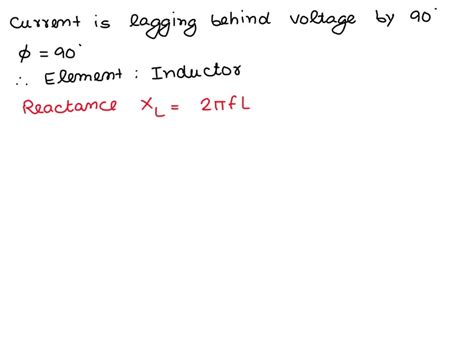 Current is lagging behind voltage by 90°
φ = 90°
∴ Element : Inductor
Reactance X_L = 2πfL